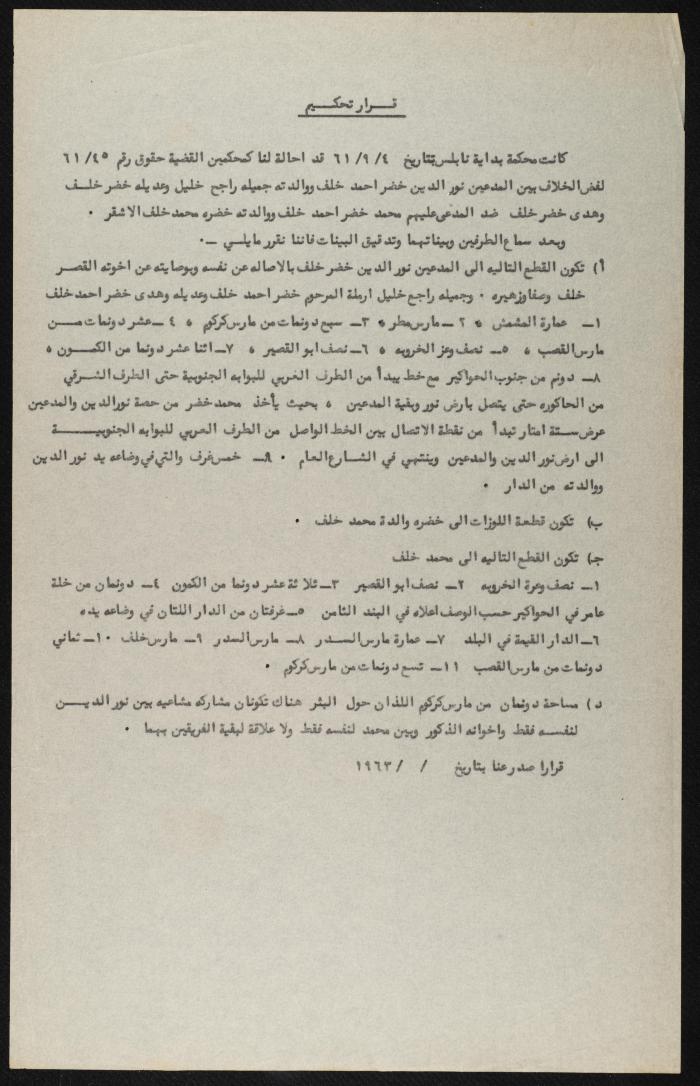 قـــرار تحكـــيم
كانت محكمة بداية نابلس بتاريخ ٦١/٩/٤ قد احالة لنا كمحكمين القضية حقوق رقم ٦١/٤٥
لفض الخلاف بين المدعين نور الدين خضر احمد خلف ووالدته جميله راجح خليل وعديله خضر خلـف
وهدى خضر خلف ضد المدعى عليهم محمد خضر احمد خلف ووالدته خضره محمد خلف الاشقر .
وبعد سماع الطرفين وبيناتهما وتدقيق البينات فاننا نقرر مايلـــي ــ.
أ) تكون القطع التاليه الى المدعين نور الدين خضر خلف بالاصاله عن نفسه وبوصايته عن اخوته القصـر
خلف وصفا وزهيره . وجميله راجح خليل ارملة المرحوم خضر احمد خلف وعديله وهدى خضر احمد خلف
١ــ عمارة المشمش ، ٢ ــ مارس مطر ، ٣ــ سبع دونمات من مارس كركوم ، ٤ ــ عشر دونمات مـــن
مارس القصب ، ٥ــ نصف وعر الخروبه ، ٦ــ نصف ابو القصير ، ٧ــ اثنا عشر دونما من الكمـــون ،
٨ــ دونم من جنوب الحواكير مع خط يبدأ من الطرف الغربي للبوابه الجنوبية حتى الطرف الشـرقي
من الحاكوره حتى يتصل بارض نور وبقية المدعين ، بحيث يأخذ محمد خضر من حصة نورالدين والمدعين
عرض ستة امتار تبدأ من نقطة الاتصال بين الخط الواصل من الطرف الغربي للبوابه الجنوبيـــــة
الى ارض نور الدين والمدعين وينتهي في الشـارع العـام . ٩ــ خمس غرف والتي في وضاعه يد نور الدين
ووالدته من الدار .
ب) تكون قطعة اللوزات الى خضره والدة محمد خلف .
جـ) تكون القطع التاليه الى محمد خلف
١ــ نصف وعرة الخروبه ٢ــ نصف ابو القصير ٣ــ ثلاثة عشر دونما من الكمون ٤ــ دونمان من خلة
عامر في الحواكير حسب الوصف اعلاه في البند الثامن ٥ــ غرفتان من الدار اللتان في وضاعه يده
٦ــ الدار القيمة في البلد ٧ــ عمارة مارس السـدر ٨ــ مارس السدر ٩ــ مارس خلف ١٠ــ ثماني
دونمات من مارس القصب ١١ــ تسع دونمات من مارس كركوم .
د) مساحة دونمان من مارس كركوم اللذان حول البئر هناك تكونان مشاركه مشاعيه بين نور الديـــن
لنفســه فقط واخوانه الذكور وبين محمد لنفسه فقط ولا علاقة لبقية الفريقين بهما .
قرارا صدر عنا بتاريخ / / ١٩٦٣